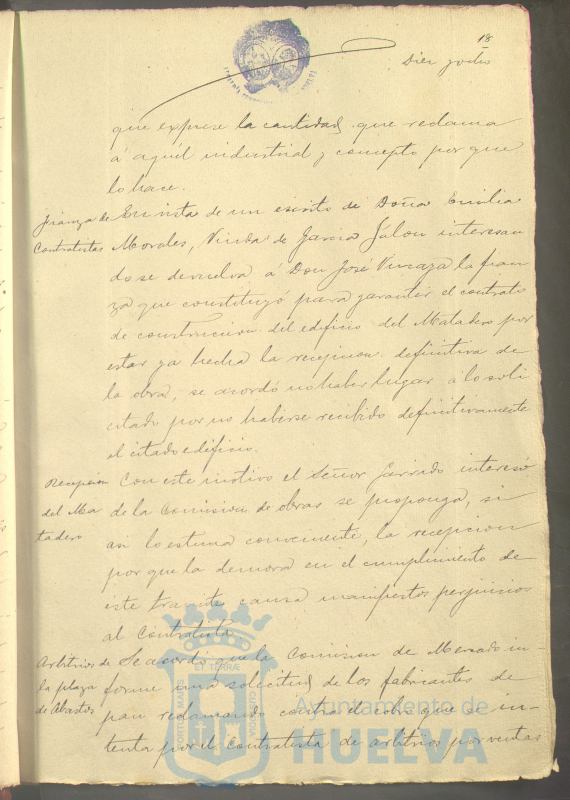 18
Diez Julio
que exprese la cantidad que reclama
á aquél industrial y concepto por que
lo hace.
Fianza de
Contratistas
En vista de un escrito de Doña Emilia
Morales, Viuda de Garcia Jalon interesan
do se devuelva á Don José Vizcaya la fian
za que constituyó para garantir el contrato
de construcción del edificio del Matadero por
estar ya hecha la recepcion definitiva de
la obra, se acordó no haber lugar á lo soli
citado por no haberse recibido definitivamente
el citado edificio.
Recepcion
del Ma
tadero
Con este motivo el Señor Garrido interesó
de la Comision de obras se proponga, si
asi lo estima conveniente, la recepcion
por que la demora en el cumplimiento de
este tramite causa manifiestos perjuicios
al Contratista.
Arbitrios de
la plaza
de Abastos
Se acordó que la Comision de Mercado in-
forme una solicitud de los fabricantes de
pan reclamando contra el cobro que se in-
tenta por el Contratista de arbitrios por ventas
PORTUS MARIS ET TERRAE CUSTODIA
Ayuntamiento de
HUELVA